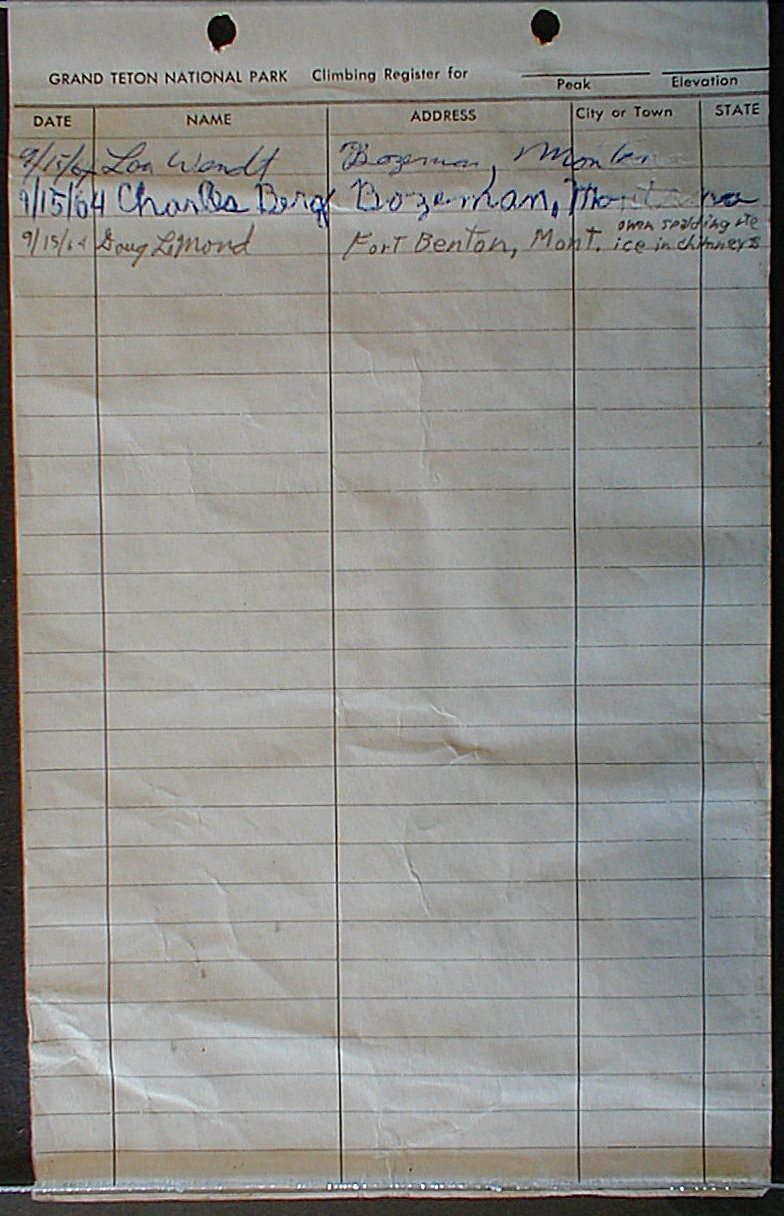 GRAND TETON NATIONAL PARK Climbing Register for
Peak Elevation
DATE NAME ADDRESS City or Town STATE
9/15/64 Lon Wendt Bozeman, Montana
9/15/64 Charles Berg Bozeman, Montana
9/15/64 Doug LeMond Fort Benton, Mont. owen spalding rte
ice in chimneys